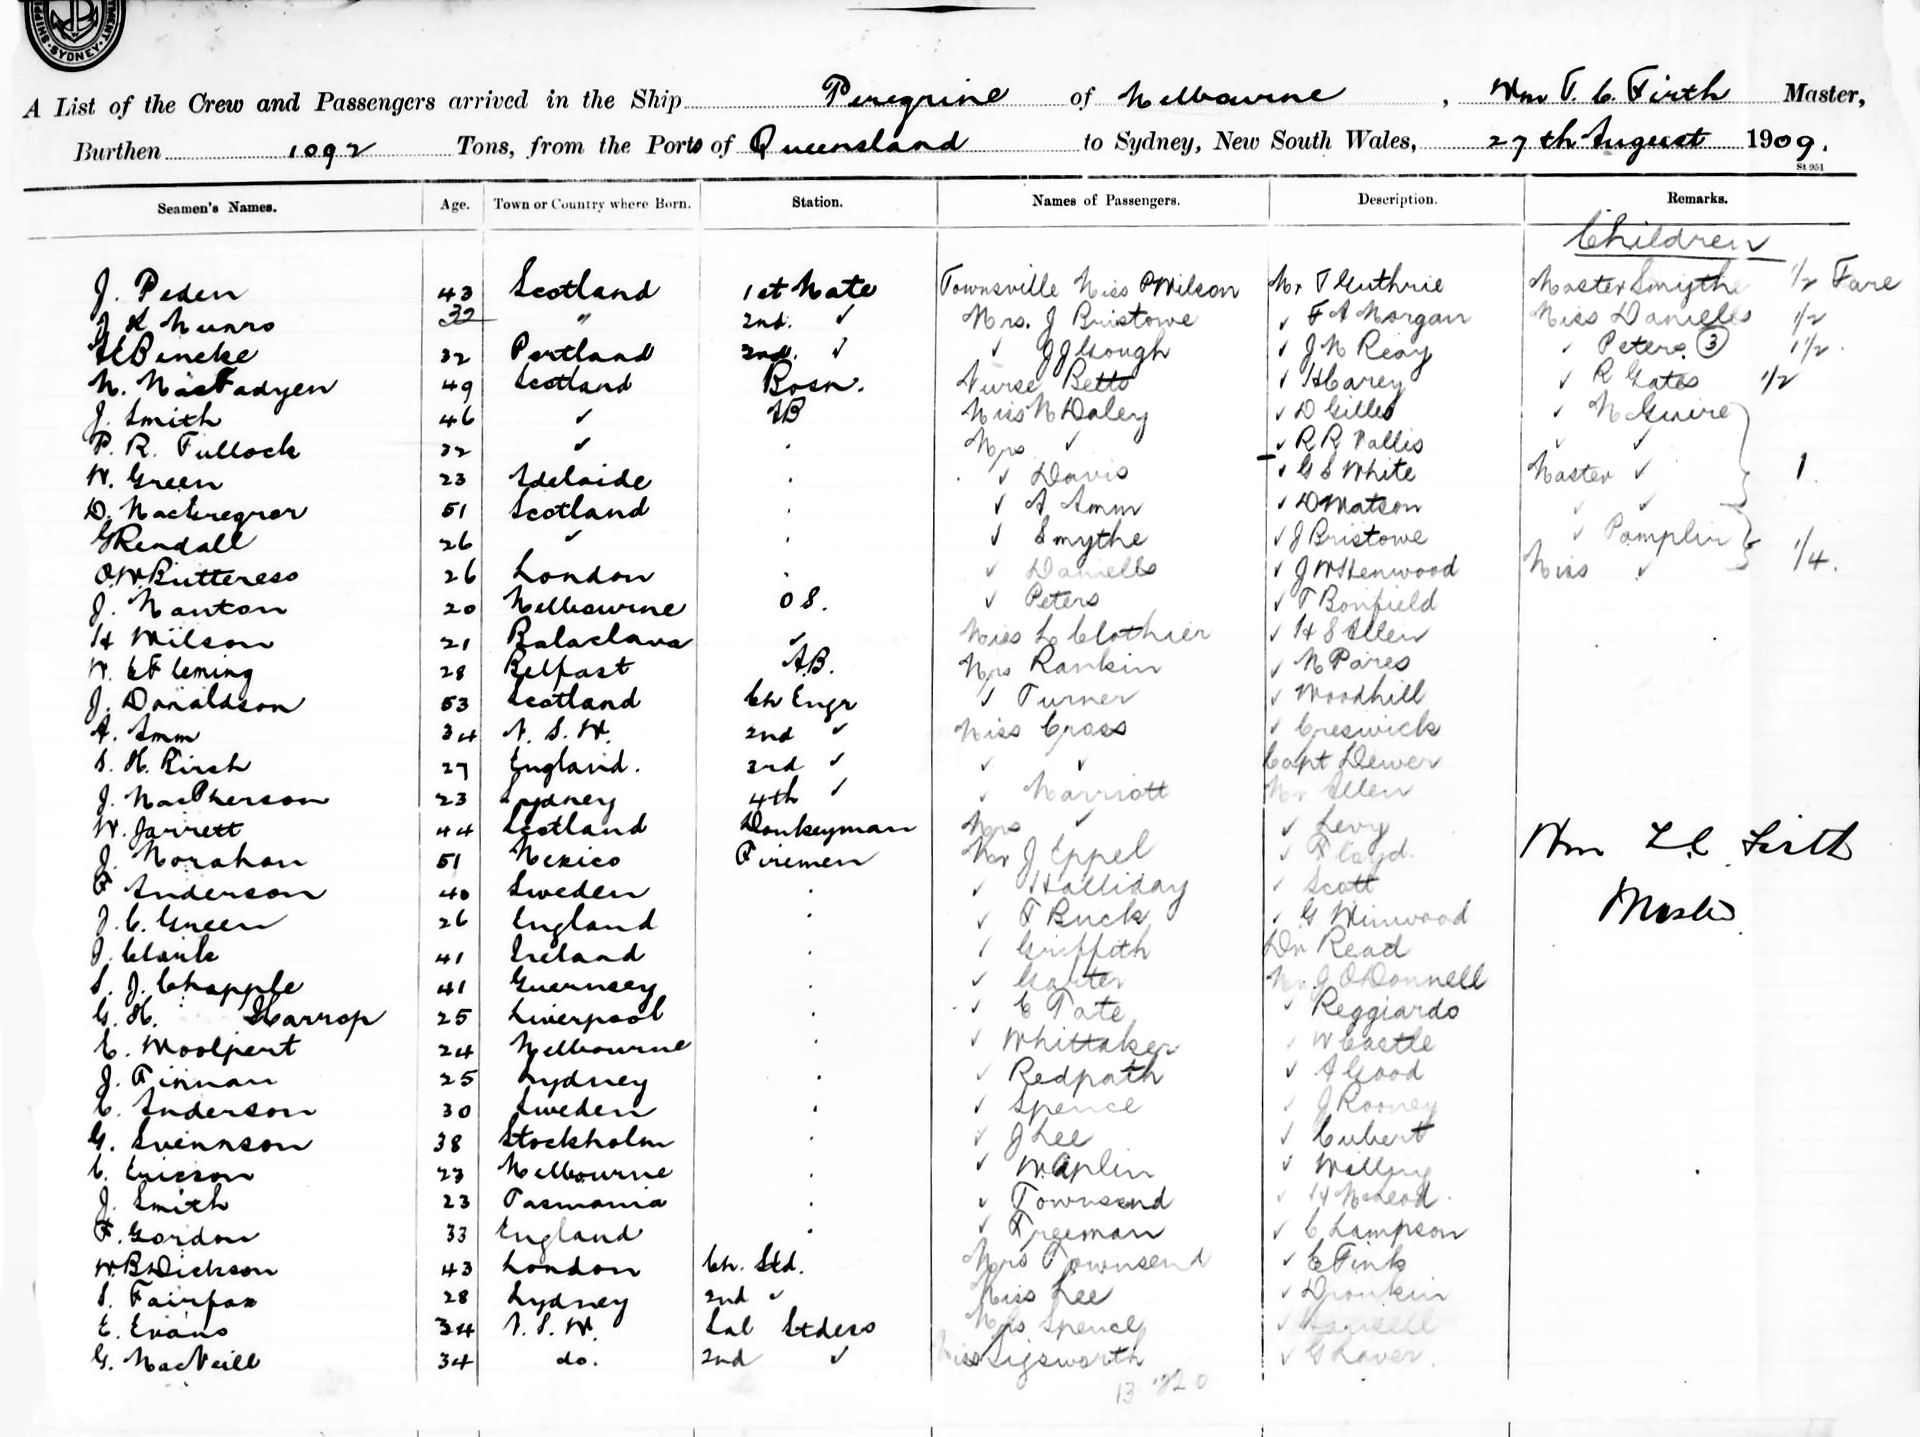 SHIPPING DEPARTMENT · SYDNEY ·
A List of the Crew and Passengers arrived in the Ship Peregrine of Melbourne, Wm T. C. Firth Master,
Burthen 1092 Tons, from the Ports of Queensland to Sydney, New South Wales, 27th August 1909.
St 951
Seamen's Names. Age. Town or Country where Born. Station. Names of Passengers. Description. Remarks.
Children
J. Peden 43 Scotland 1st Mate Townsville Miss P Wilson Mr T Guthrie Master Smythe 1/2 Fare
J K Munro 32 " 2nd. ✓ Mrs. J Bristowe ✓ F A Morgan Miss Daniells 1/2
Beneke 32 Portland 2nd. ✓ ✓ J J Gough ✓ J M Reay ✓ Peters (3) 1 1/2.
N. MacFadyen 49 Scotland Bosn. Nurse Betts ✓ H Carey ✓ R Gates 1/2
J. Smith 46 ✓ AB Miss M Daley ✓ D Gilles ✓ McGuire
P. R. Tullock 32 ✓ . Mrs ✓ ✓ R R Wallis ✓ ✓
W. Green 23 Adelaide . ✓ Davis ✓ G S White Master ✓ 1.
D. MacGregror 51 Scotland . ✓ A Amm ✓ D Watson ✓ ✓
G Rendall 26 ✓ . ✓ Smythe ✓ J Bristowe ✓ Pamplin
O. W. Butteress 26 London . ✓ Daniells ✓ J W Henwood Miss ✓ 1/4.
J. Manton 20 Melbourne O S. ✓ Peters ✓ T Bonfield
H Wilson 21 Balaclava ✓ Miss L Clothier ✓ H S Allen
W. E Fleming 28 Belfast A.B. Mrs Rankin ✓ M Pares
J. Donaldson 53 Scotland Ch Engr ✓ Turner ✓ Woodhill
A. Amm 34 N. S. W. 2nd ✓ Miss Cross ✓ Creswick
S. H. Kirsh 27 England. 3rd ✓ ✓ ✓ Capt Dewer
J. MacPherson 23 Sydney 4th ✓ ✓ Marriott Mr Allen
W. Jarrett 44 Scotland Donkeyman Mrs ✓ ✓ Levy
J. Morahan 51 Mexico Firemen Mr J Eppel ✓ Floyd. Wm T. C. Firth
F Anderson 40 Sweden . ✓ Halliday ✓ Scott
J. C. Green 26 England . ✓ T Buck ✓ G Winwood Master
J. Clark 41 Ireland . ✓ Griffith Dr Read
S. J. Chapple 41 Guernsey . ✓ Garter Mr J O'Donnell
G. H. Harrop 25 Liverpool . ✓ C Tate ✓ Reggiardo
C. Woolpert 24 Melbourne . ✓ Whittaker ✓ W Castle
J. Finnan 25 Sydney . ✓ Redpath ✓ A Good
C. Anderson 30 Sweden . ✓ Spence ✓ J Rooney
G. Svennson 38 Stockholm . ✓ J Lee ✓ Cubert
C. Ericson 23 Melbourne . ✓ W. Aplin ✓ Willing
J. Smith 23 Tasmania . ✓ Townsend ✓ H McLeod.
F. Gordon 33 England . ✓ Freeman ✓ C Lampson
W. B Dickson 43 London Ch. Std. Mrs Townsend ✓ C Fink
S. Fairfax 28 Sydney 2nd ✓ Miss Lee ✓
E. Evans 34 N. S. W. Sal Stdess Mrs Spence ✓
G. MacNeill 34 do. 2nd ✓ Miss Sigsworth ✓ G Laver.
13